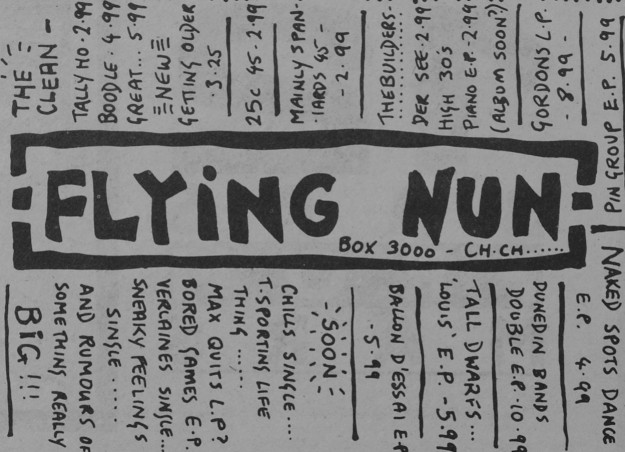 THE
CLEAN -
TALLY HO. 2.99
BOODLE. 4.99
GREAT... 5.99
NEW
GETTING OLDER
.3.25
25c 45 - 2.99
MAINLY SPAN-
IARDS 45 -
- 2.99
THE BUILDERS:
DER SEE. 2.99
HIGH 30S
PIANO E.P. - 2.99
(ALBUM SOON?)
GORDONS L.P. -
- 8.99 -
PIN GROUP E.P. 5.99
FLYiNG NUN
BOX 3000 - CH.CH......
NAKED SPOTS DANCE
E.P. 4.99
DUNEDIN BANDS
DOUBLE E.P. 10.99
TALL DWARFS...
'LOUIS' E.P. - 5.99
BALLON D'ESSAI E.P
- 5.99
- SOON -
CHILLS SINGLE....
T. SPORTING LIFE
THING ......
MAX QUITS L.P?
BORED GAMES E.P.
VERLAINES SINGLE...
SNEAKY FEELINGS
SINGLE ......
AND RUMOURS OF
SOMETHING REALLY
BiG !!!